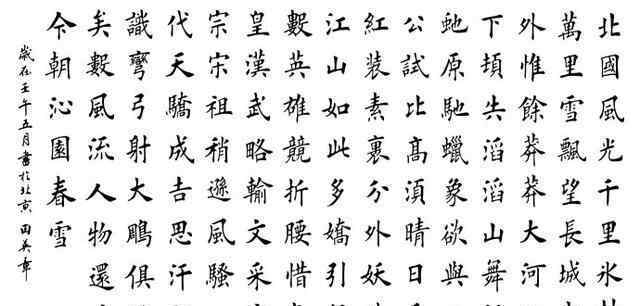 北國風光千里氷
萬里雪飄望長城
外惟餘莽莽大河
下頓失滔滔山舞
虵原馳蠟象欲與
公試比高須晴日
紅裝素裹分外妖
江山如此多嬌引
數英雄競折腰惜
皇漢武略輸文采
宗宋祖稍遜風騷
代天驕成吉思汗
識彎弓射大鵰俱
矣數風流人物還
今朝沁園春雪
歲在壬午五月書於北京 田英章